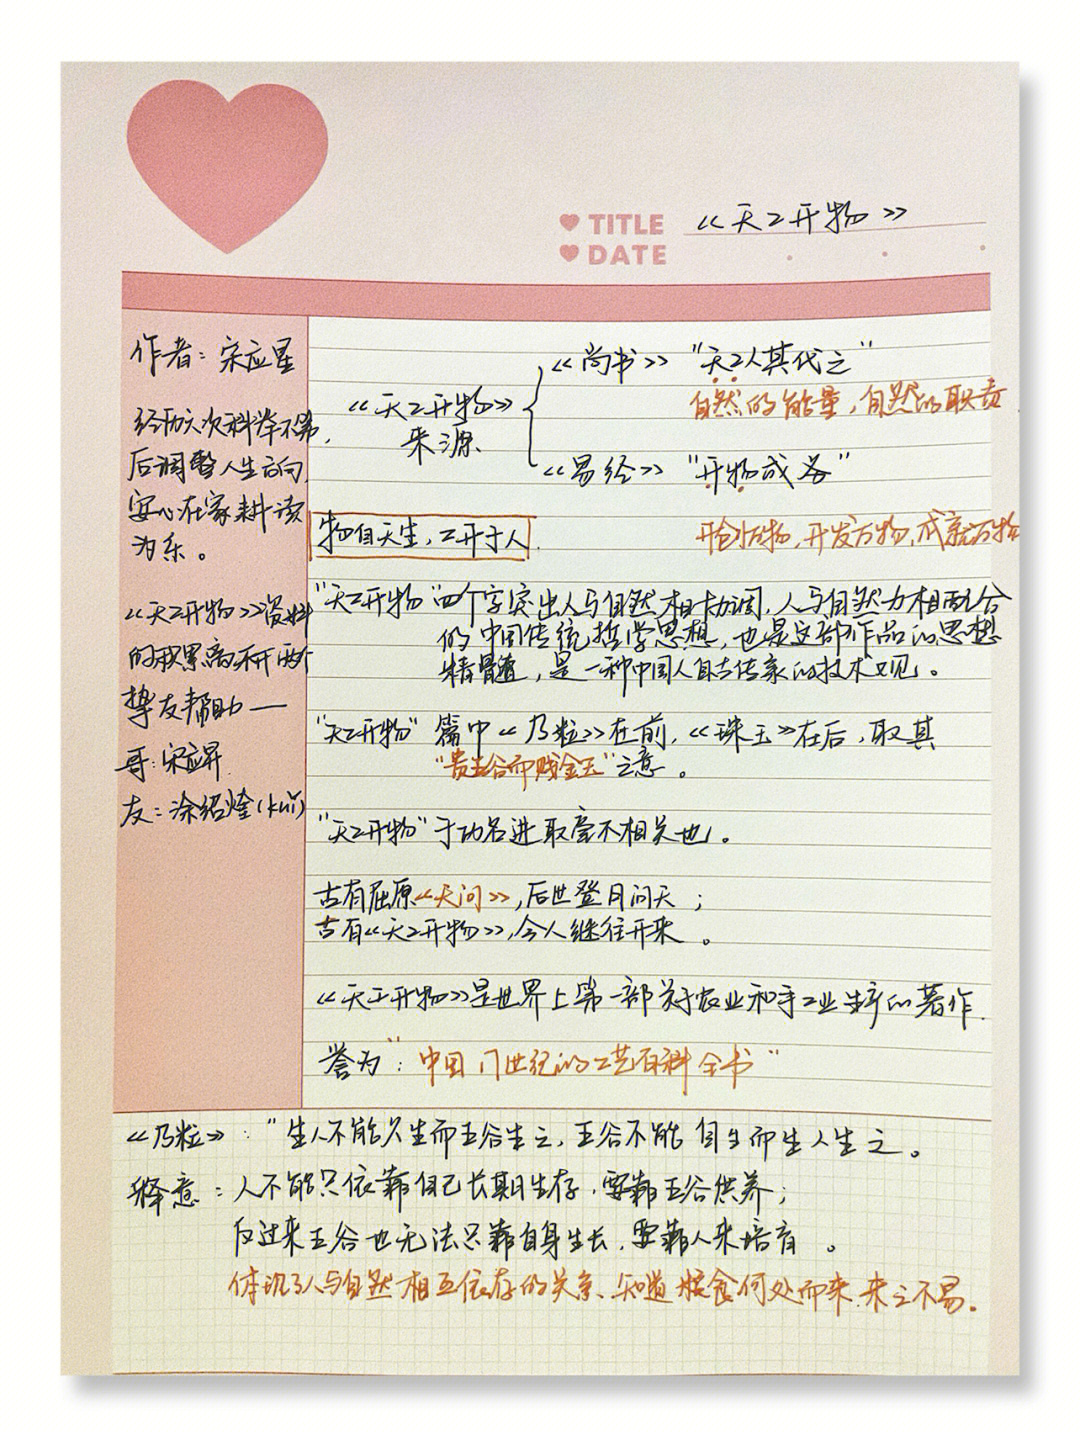 TITLE 《天工开物》
DATE
作者：宋应星
经历六次科举不第，
后调整人生方向，
安心在家耕读
为乐。
《天工开物》资料
的积累离不开两个
挚友帮助——
哥：宋应昇
友：涂绍煃(kuǐ)
《天工开物》
来源
《尚书》 "天工人其代之"
自然的能量，自然的职责
《易经》 "开物成务"
开创万物，开发万物，成就万物
物自天生，工开于人.
"天工开物"四个字突出人与自然相协调，人与自然力相配合
的中国传统哲学思想，也是这部作品的思想
精髓，是一种中国人自古传承的技术观。
"天工开物" 篇中《乃粒》在前，《珠玉》在后，取其
"贵五谷而贱金玉"之意。
"天工开物"于功名进取毫不相关也。
古有屈原《天问》，后世登月问天；
古有《天工开物》，今人继往开来。
《天工开物》是世界上第一部关于农业和手工业生产的著作.
誉为："中国17世纪的工艺百科全书"
《乃粒》："生人不能久生而五谷生之，五谷不能自生而生人生之。
释意：人不能只依靠自己长期生存，要靠五谷供养；
反过来五谷也无法只靠自身生长，要靠人来培育。
体现了人与自然相互依存的关系、知道粮食何处而来.来之不易.